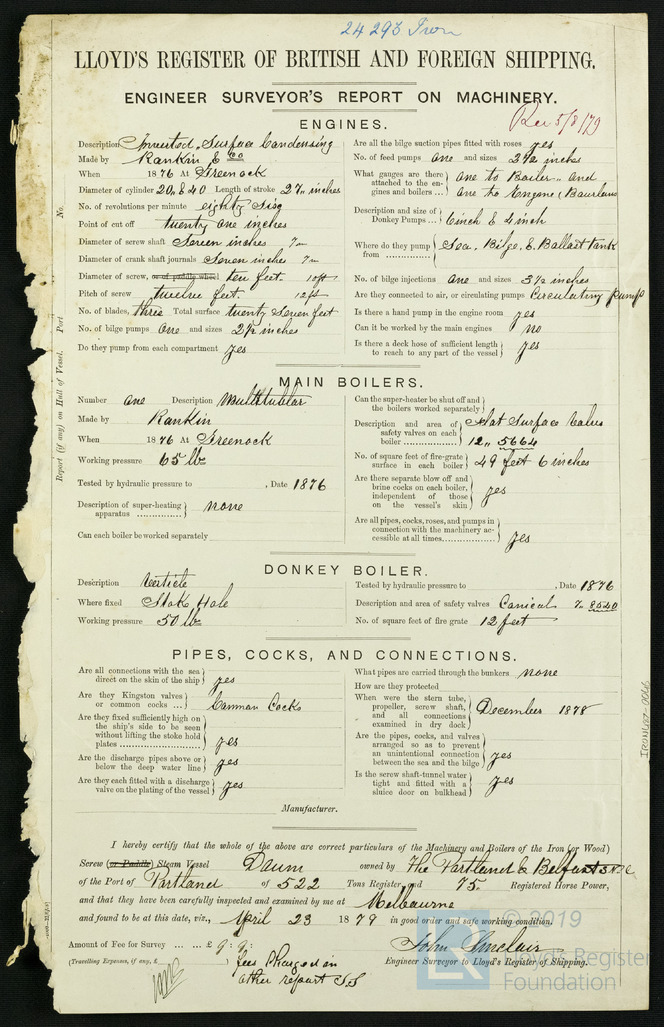 24293 Iron
LLOYD'S REGISTER OF BRITISH AND FOREIGN SHIPPING.
ENGINEER SURVEYOR'S REPORT ON MACHINERY.
Rec 5/8/79
ENGINES.
Description Inverted, Surface Condensing
Made by Rankin & Co
When 1876 At Greenock
Diameter of cylinder 20, & 40 Length of stroke 27" inches
No. of revolutions per minute eighty Sise
Point of cut off twenty one inches
Diameter of screw shaft Seven inches 7 in
Diameter of crank shaft journals Seven inches 7 in
Diameter of screw, or of paddle wheel ten feet. 10 ft
Pitch of screw twelve feet. 12 ft
No. of blades, thrie Total surface twenty Seven feet
No. of bilge pumps one and sizes 2½ inches
Do they pump from each compartment yes
Are all the bilge suction pipes fitted with roses yes
No. of feed pumps one and sizes 2½ inches
What gauges are there attached to the engines and boilers ... one to Boiler and
one to Engine (
Description and size of Donkey Pumps .. 6 inch & 4 inch
Where do they pump from Sea, Bilge, & Ballast tank
No. of bilge injections one and sizes 3½ inches
Are they connected to air, or circulating pumps Circulating pump
Is there a hand pump in the engine room yes
Can it be worked by the main engines no
Is there a deck hose of sufficient length to reach to any part of the vessel yes
Report (if any) on Hull of Vessel. Port No.
MAIN BOILERS.
Number one Description Multitubular
Made by Rankin
When 1876 At Greenock
Working pressure 65 lb
Tested by hydraulic pressure to , Date 1876
Description of super-heating apparatus none
Can each boiler be worked separately
Can the super-heater be shut off and the boilers worked separately
Description and area of safety valves on each boiler Flat Surface Valves
12" 5664
No. of square feet of fire-grate surface in each boiler 49 feet 6 inches
Are there separate blow off and brine cocks on each boiler, independent of those on the vessel's skin yes
Are all pipes, cocks, roses, and pumps in connection with the machinery accessible at all times. yes
DONKEY BOILER.
Description Verticle
Where fixed Stoke Hole
Working pressure 50 lb
Tested by hydraulic pressure to , Date 1876
Description and area of safety valves Conical 7" 8540
No. of square feet of fire grate 12 feet
PIPES, COCKS, AND CONNECTIONS.
Are all connections with the sea direct on the skin of the ship yes
Are they Kingston valves or common cocks ... Common Cocks
Are they fixed sufficiently high on the ship's side to be seen without lifting the stoke hold plates yes
Are the discharge pipes above or below the deep water line yes
Are they each fitted with a discharge valve on the plating of the vessel yes
What pipes are carried through the bunkers none
How are they protected
When were the stern tube, propeller, screw shaft, and all connections examined in dry dock December 1878
Are the pipes, cocks, and valves arranged so as to prevent an unintentional connection between the sea and the bilge yes
Is the screw shaft-tunnel water tight and fitted with a sluice door on bulkhead yes
IRON607-0066
Manufacturer.
I hereby certify that the whole of the above are correct particulars of the Machinery and Boilers of the Iron (or Wood)
Screw (or Paddle) Steam Vessel Dawn owned by The Portland & Belfast S. N. C.
of the Port of Portland of 522 Tons Register and 75. Registered Horse Power,
and that they have been carefully inspected and examined by me at Melbourne
and found to be at this date, viz., April 23 1879 in good order and safe working condition.
Amount of Fee for Survey ... ... £
John Sinclair
(Travelling Expenses, if any, £ ) Fees Charged in
other report J.S
Engineer Surveyor to Lloyd's Register of Shipping.
© 2019
LR
Lloyd's Register
Foundation